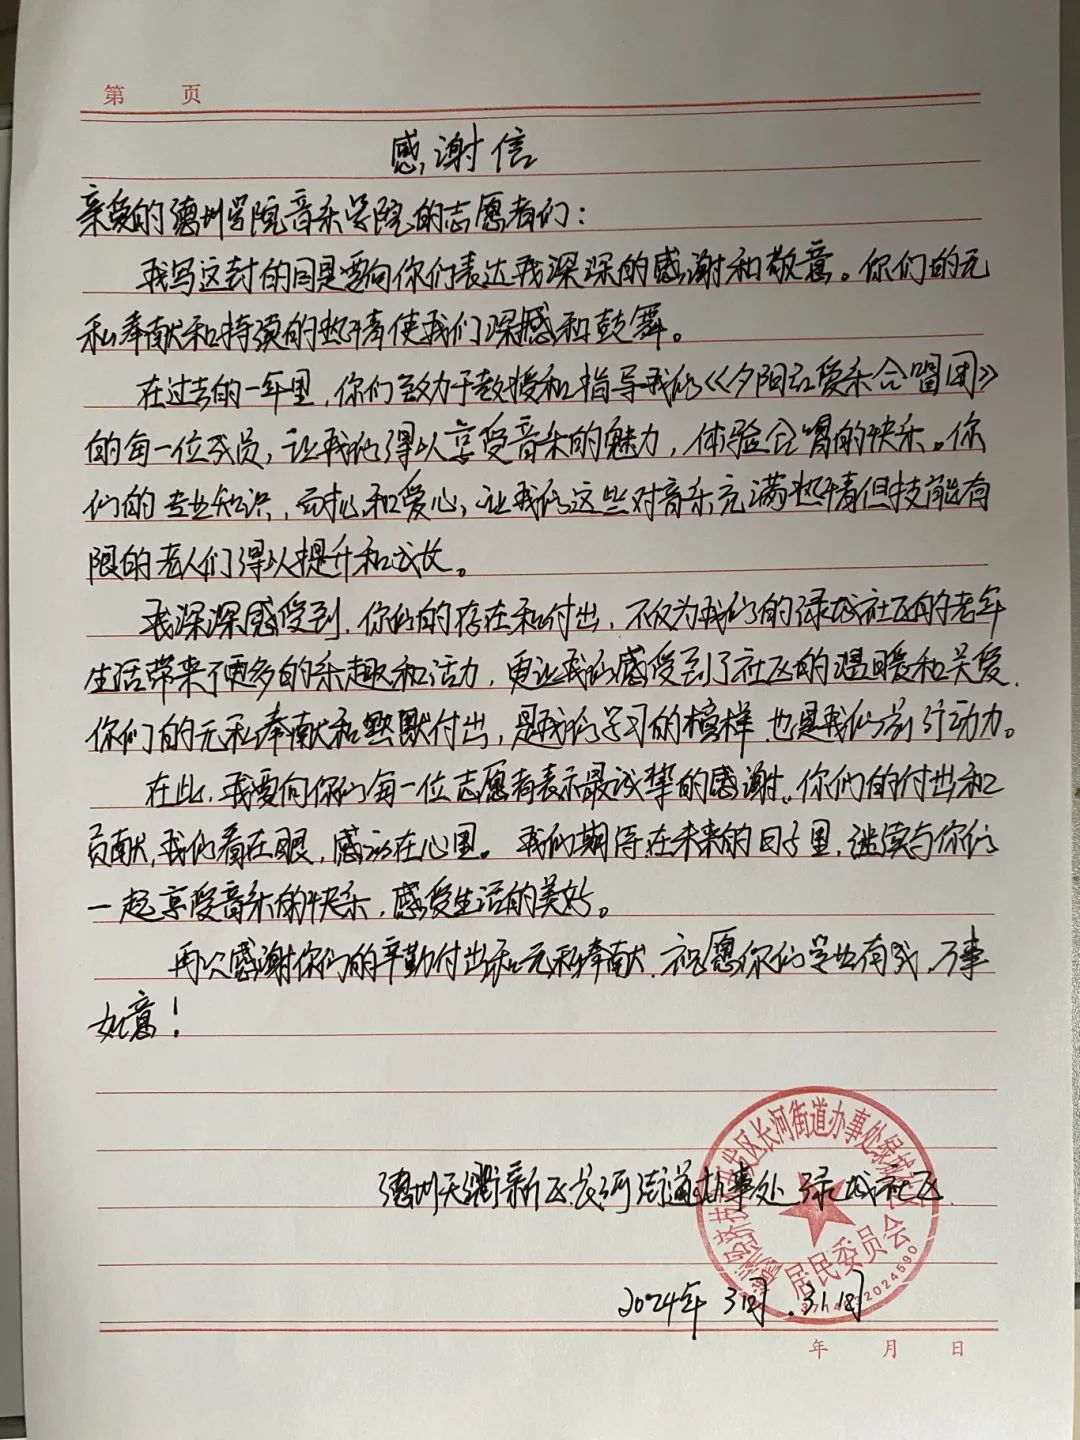 第 页
感谢信
亲爱的德州学院音乐学院的志愿者们：
我写这封的目是要向你们表达我深深的感谢和敬意。你们的无
私奉献和持续的热情使我们深感和鼓舞。
在过去的一年里，你们致力于教授和指导我们《夕阳红爱乐合唱团》
的每一位成员，让我们得以享受音乐的魅力，体验合唱的快乐。你
们的专业知识，耐心和爱心，让我们这些对音乐充满热情但技能有
限的老人们得以提升和成长。
我深深感受到，你们的存在和付出，不仅为我们的绿城社区的老年
生活带来了更多的乐趣和活力，更让我们感受到了社区的温暖和关爱，
你们的无私奉献和默默付出，是我们学习的榜样，也是我们前行动力。
在此，我要向你们每一位志愿者表示最诚挚的感谢。你们的付出和
贡献，我们看在眼，感动在心里。我们期待在未来的日子里，继续与你们
一起享受音乐的快乐，感受生活的美好。
再次感谢你们的辛勤付出和无私奉献，祝愿你们学业有成，万事
如意！
德州天衢新区长河街道办事处绿城社区
2024年3月.31日
区长河街道办事处绿城社区
居民委员会
年 月 日